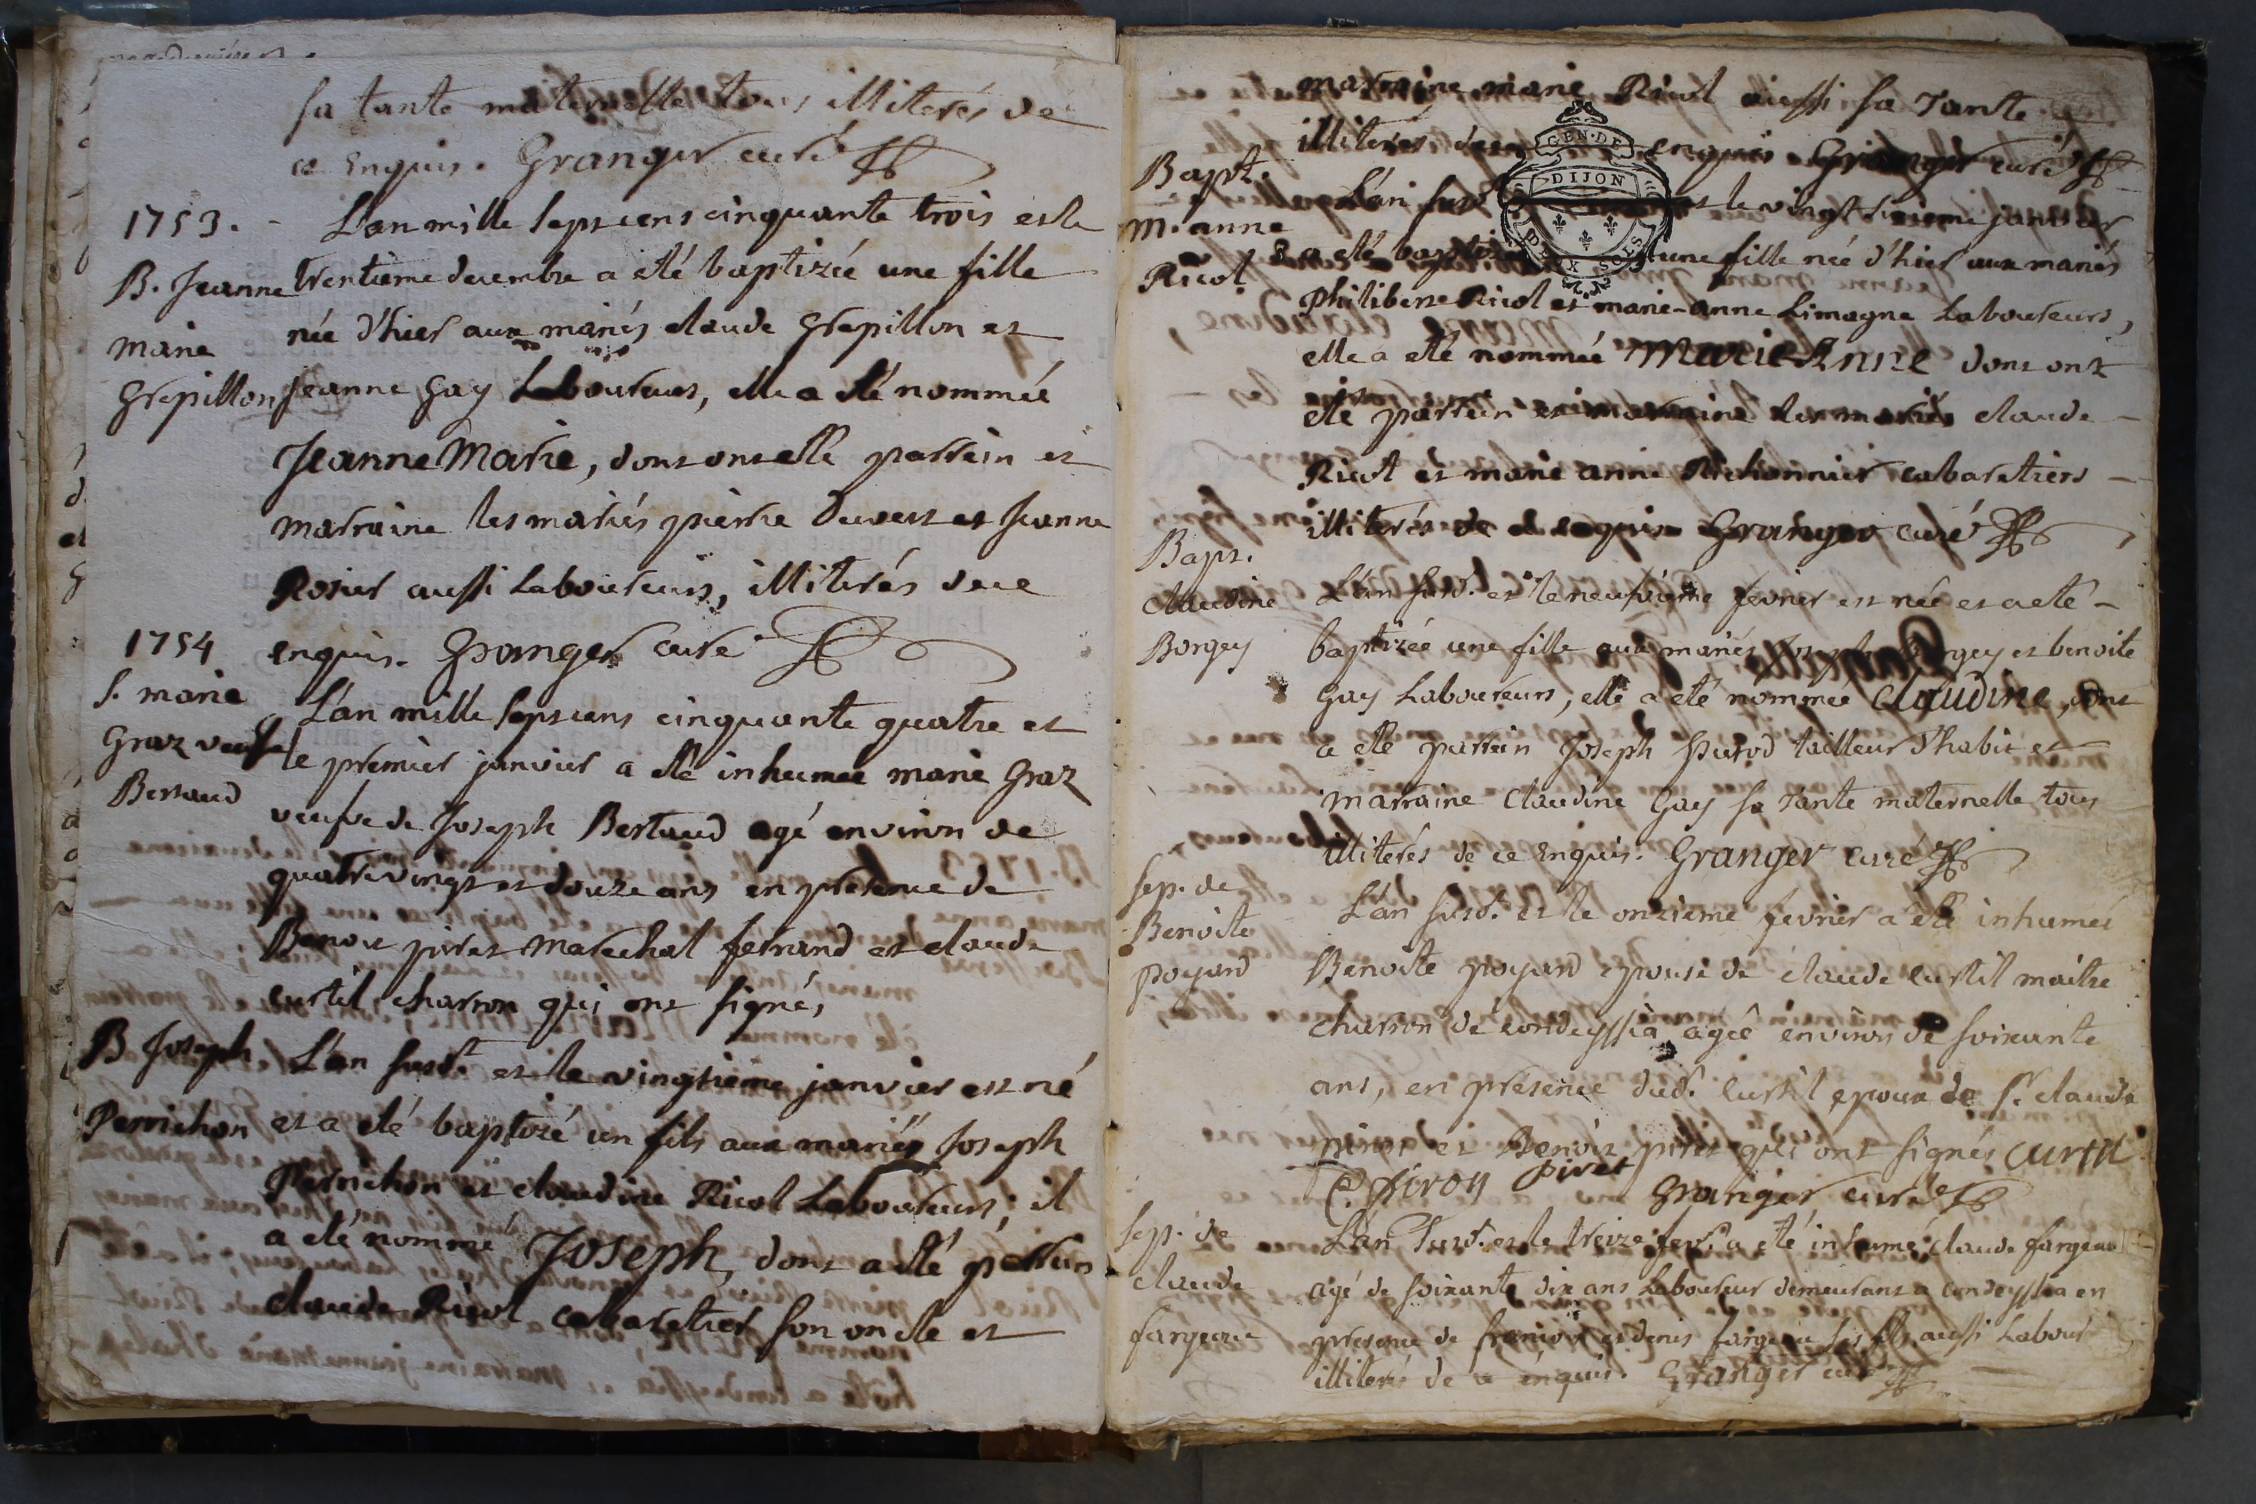 sa tante maternelle tous illiterés de
ce enquis. Granger curé
1753. - L'an mille sept cens cinquante trois et le
B. Jeanne trentieme decembre a eté baptizée une fille
née d'hier aux mariés claude Grepillon et
marie
Grepillon jeanne Gay Laboureurs, elle a eté nommée
Jeanne Marie, dont ont etté parrein et
marraine les mariés pierre Duvert et Jeanne
Rosier aussi Laboureurs, illiterés de ce
enquis. Granger curé
1754
S. marie L'an mille sept cens cinquante quatre et
Graz veufve le premier janvier a eté inhumee marie Graz
Bertaud
veufve de Joseph Bertaud agé environ de
quatre vingt et douze ans en presence de
Benoit piret marechal ferrand et claude
curtil charron qui ont signés
B Joseph L'an susd. et le vingtieme janvier est né
Perrichon et a eté baptizé un fils aux mariés Joseph
Perrichon et claudine Ricol Laboureurs; il
a eté nommé Joseph, dont a eté parrein
claude Ricol cabaretier son oncle et
marraine marie Ricol aussi sa Tante
illiterés de enquis Granger curé
Bapt.
m. anne
Ricol
L'an susd et le vingt janvier
a eté baptizée une fille née d'hier aux mariés
Philibert Ricol et marie-anne Limagne Laboureurs,
elle a eté nommée Marie Anne dont ont
eté parrein et marraine les mariés claude
Ricol et marie anne cabaretiers
illiterés de ce enquis Granger curé
Bapt.
Claudine
Borgey
L'an susd. et le neufvieme fevrier est née et a eté
baptizée une fille aux mariés Joseph Borgey et benoite
Gay Laboureurs, elle a eté nommée Claudine, dont
a eté parrein Joseph Purod tailleur d'habit et
marraine Claudine Gay sa Tante maternelle tous
illiterés de ce enquis. Granger curé
Sep. de
Benoite
poyard
L'an susd. et le onzieme fevrier a eté inhumée
Benoite poyard epouse de claude curtil maitre
charron de condeyssia agée environ de soixante
ans, en presence dud. curtil epoux de Sr. claude
piron et Benoit piret qui ont signés curtil
C. piron piret Granger curé
Sep. de
claude
fargeau
L'an susd. et le treize fevr. a eté inhumé claude fargeau
agé de soixante dix ans Laboureur demeurant a condeyssia en
presence de francois et denis fargeau ses fils aussi Labour
illiterés de ce enquis. Granger curé
GEN. DE
DIJON
DEUX SOLS